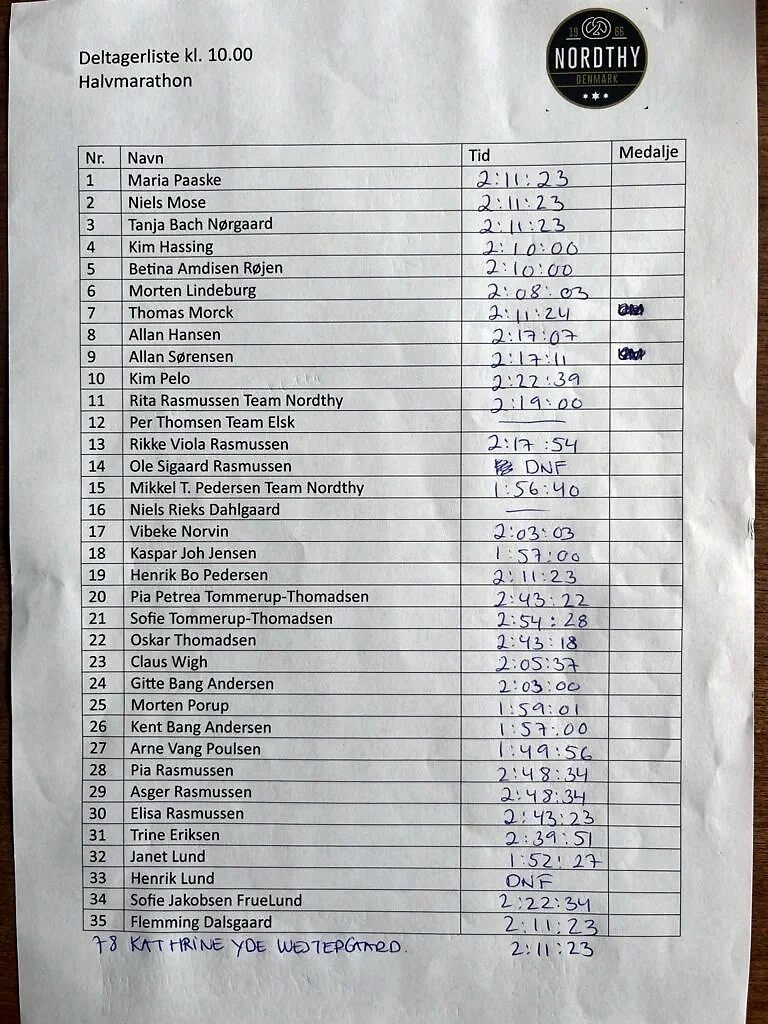 Deltagerliste kl. 10.00
Halvmarathon
19 66
NORDTHY
DENMARK
Nr. Navn Tid Medalje
1 Maria Paaske 2:11:23
2 Niels Mose 2:11:23
3 Tanja Bach Nørgaard 2:11:23
4 Kim Hassing 2:10:00
5 Betina Amdisen Røjen 2:10:00
6 Morten Lindeburg 2:08:03
7 Thomas Morck 2:11:24
8 Allan Hansen 2:17:07
9 Allan Sørensen 2:17:11
10 Kim Pelo 2:22:39
11 Rita Rasmussen Team Nordthy 2:19:00
12 Per Thomsen Team Elsk —
13 Rikke Viola Rasmussen 2:17:54
14 Ole Sigaard Rasmussen DNF
15 Mikkel T. Pedersen Team Nordthy 1:56:40
16 Niels Rieks Dahlgaard —
17 Vibeke Norvin 2:03:03
18 Kaspar Joh Jensen 1:57:00
19 Henrik Bo Pedersen 2:11:23
20 Pia Petrea Tommerup-Thomadsen 2:43:22
21 Sofie Tommerup-Thomadsen 2:54:28
22 Oskar Thomadsen 2:43:18
23 Claus Wigh 2:05:37
24 Gitte Bang Andersen 2:03:00
25 Morten Porup 1:59:01
26 Kent Bang Andersen 1:57:00
27 Arne Vang Poulsen 1:49:56
28 Pia Rasmussen 2:48:34
29 Asger Rasmussen 2:48:34
30 Elisa Rasmussen 2:43:23
31 Trine Eriksen 2:39:51
32 Janet Lund 1:52:27
33 Henrik Lund DNF
34 Sofie Jakobsen FrueLund 2:22:34
35 Flemming Dalsgaard 2:11:23
78 KATHRINE YDE WESTERGAARD. 2:11:23